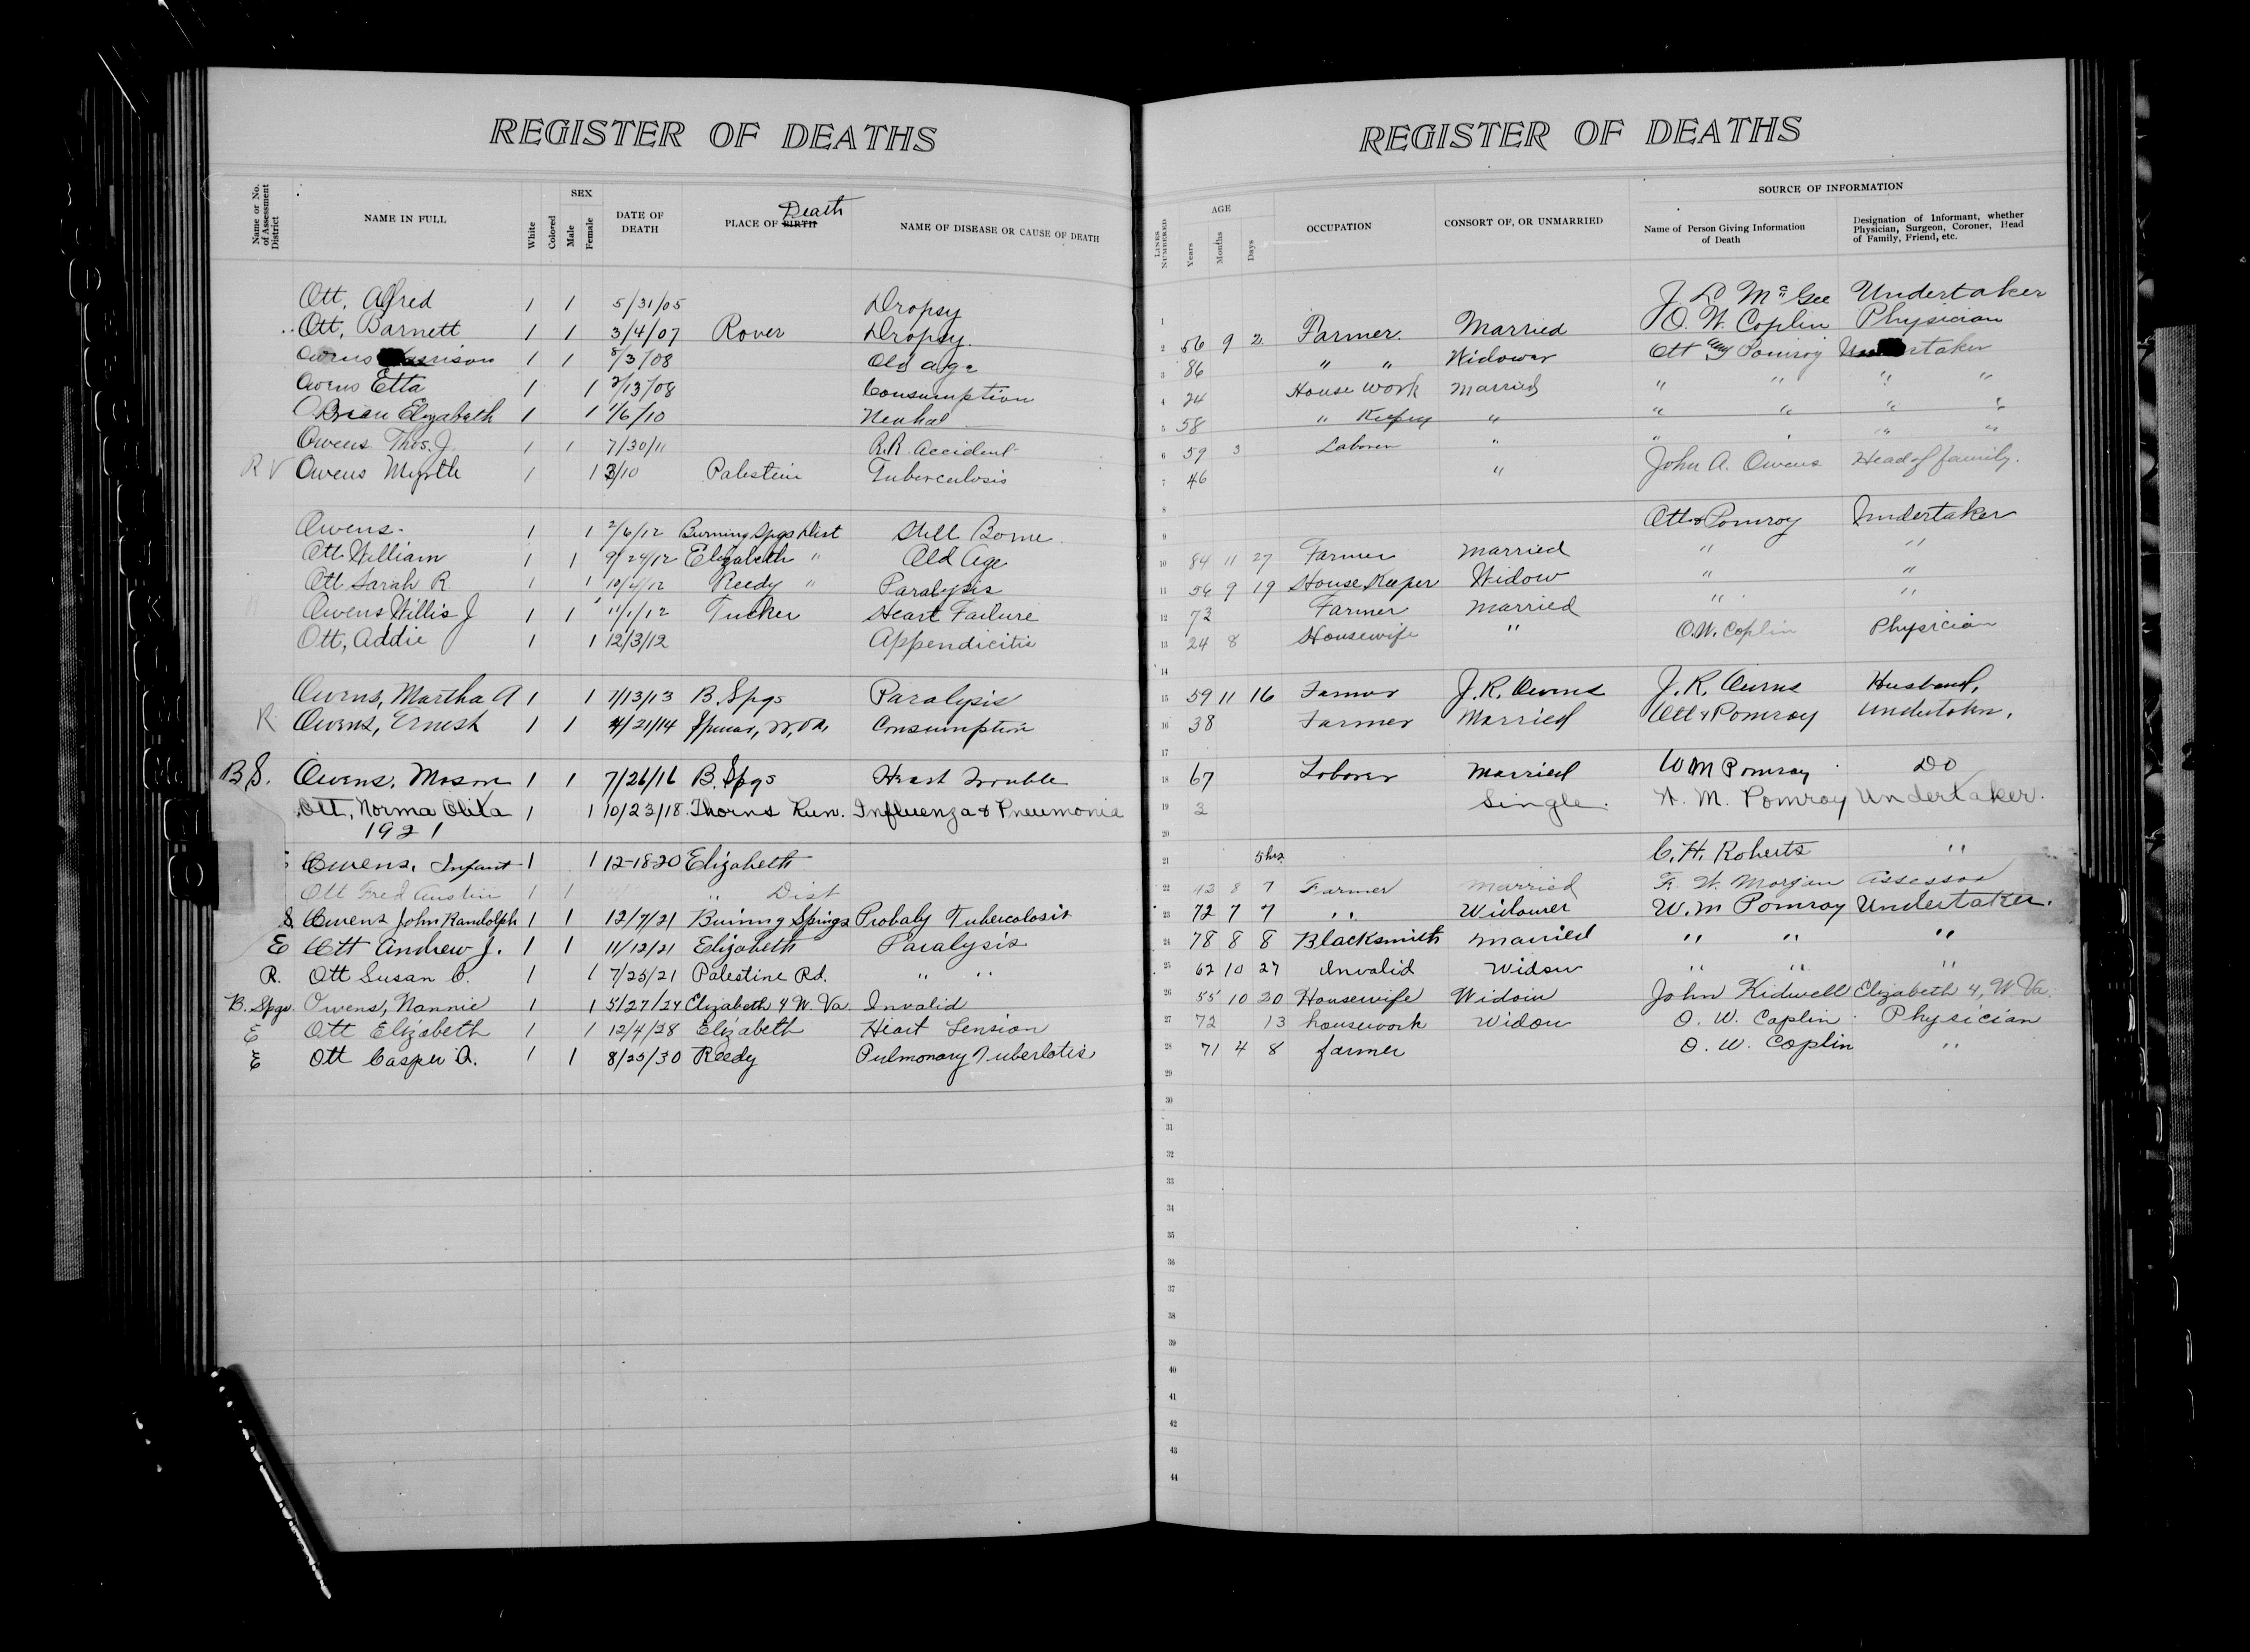 REGISTER OF DEATHS
Name or No. of Assessment District
NAME IN FULL
White
Colored
SEX
Male
Female
DATE OF DEATH
PLACE OF BIRTH Death
NAME OF DISEASE OR CAUSE OF DEATH
Ott, Alfred 1 1 5/31/05 Dropsy
Ott, Barnett 1 1 3/4/07 Rover Dropsy.
Owens 1 1 8/3/08 Old age
Owens Etta 1 1 2/13/08 Consumption
OBrien Elizabeth 1 1 1/6/10
Owens Thos. J 1 1 7/30/11 R.R. Accident
R V Owens Myrtle 1 1 3/10 Palestein Tuberculosis
Owens 1 1 2/6/12 Burning Spgs Dist Still Borne
Ott William 1 1 9/24/12 Elizabeth " Old Age
Ott Sarah R 1 1 Reedy " Paralysis
Owens Willis J 1 1 11/1/12 Tucker Heart Failure
Ott, Addie 1 1 12/3/12 Appendicitis
Owens, Martha A 1 1 7/13/13 B. Spgs Paralysis
R Owens, Ernest 1 1 4/21/14 Consumption
B.S. Owens, Mason 1 1 7/26/16 B. Spgs Heart Trouble
Ott, Norma Olita 1 1 10/23/18 Thorns Run. Influenza & Pneumonia
1921
Owens, Infant 1 1 12-18-20 Elizabeth
Ott Fred Austin 1 1 " Dist
S Owens John Randolph 1 1 12/7/21 Burning Springs Probaly Tubercolosis
E Ott Andrew J. 1 1 11/12/21 Elizabeth Paralysis
R. Ott Susan C. 1 1 7/25/21 Palestine Rd. " "
B. Spgs. Owens, Nannie 1 1 5/27/24 Elizabeth 4 W. Va. Invalid
E Ott Elizabeth 1 1 12/4/28 Elizabeth Heart Lension
E Ott Casper A. 1 1 8/25/30 Reedy Pulmonary Tuberlotis
REGISTER OF DEATHS
LINES NUMBERED
AGE
Years
Months
Days
OCCUPATION
CONSORT OF, OR UNMARRIED
SOURCE OF INFORMATION
Name of Person Giving Information of Death
Designation of Informant, whether Physician, Surgeon, Coroner, Head of Family, Friend, etc.
1 J. D. McGee Undertaker
2 56 9 2 Farmer. Married O. W. Coplin Physician
3 86 " " Widower Ott Pomroy
4 24 House work Married " " " "
5 58 " " " " " "
6 59 3 Laborer " " " "
7 46 " John A. Owens Head of family.
8
9 Ott & Pomroy Undertaker
10 84 11 27 Farmer Married " "
11 56 9 19 House Keeper Widow " "
12 73 Farmer Married " "
13 24 8 Housewife " O.W. Coplin Physician
14
15 59 11 16 Farmer J. R. Owens J. R. Owens Husband,
16 38 Farmer Married Ott & Pomroy Undertaker,
17
18 67 Laborer Married W M Pomroy Do
19 2 Single. W. M. Pomroy Undertaker.
20
21 5 hrs. C. H. Roberts "
22 8 7 Farmer Married F. W. Morgan Assessor
23 72 7 7 " Widower W. M Pomroy Undertaker.
24 78 8 8 Blacksmith Married " " "
25 62 10 27 Invalid Widow " " "
26 55 10 20 Housewife Widow John Kidwell Elizabeth 4, W. Va.
27 72 13 housework Widow O. W. Coplin Physician
28 71 4 8 farmer O. W. Coplin "
29
30
31
32
33
34
35
36
37
38
39
40
41
42
43
44